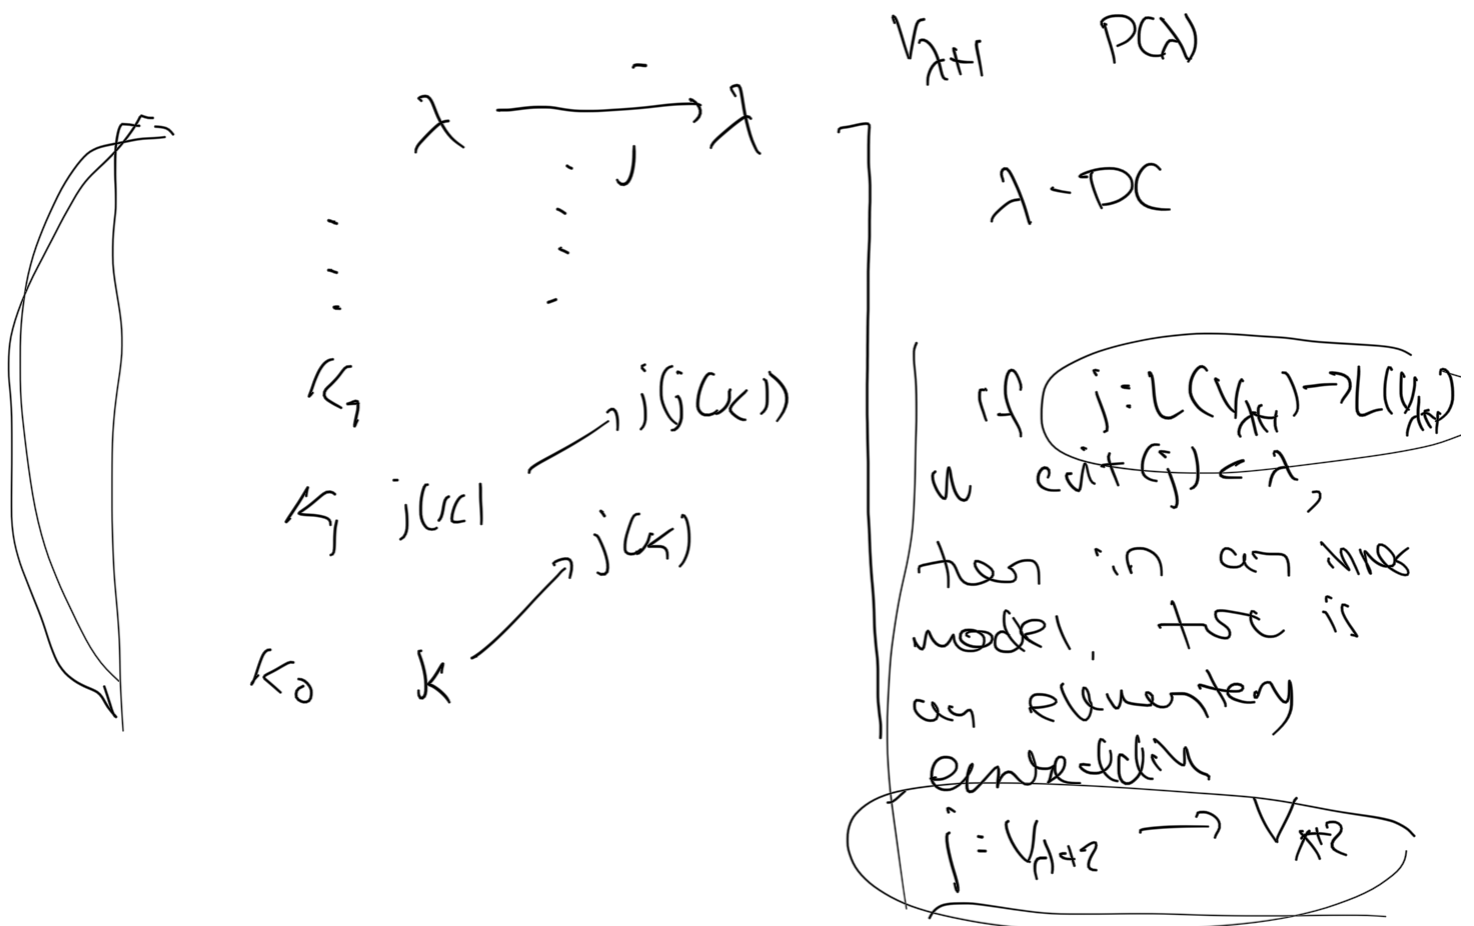 V_{λ+1} P(λ)
λ → λ
j
λ-DC
κ_1 j(j(κ))
κ_1 j(κ) j(κ)
κ_0 κ
if j: L(V_{λ+1}) → L(V_{λ+1})
w crit(j) < λ,
then in an inner
model, there is
an elementary
embeddin
j: V_{λ+2} → V_{λ+2}